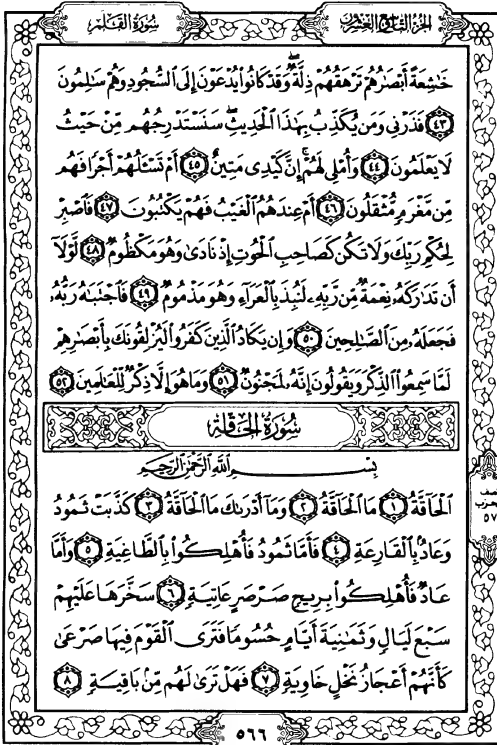 الجزء التاسع والعشرون
سورة القلم
خَٰشِعَةً أَبْصَٰرُهُمْ تَرْهَقُهُمْ ذِلَّةٌ ۖ وَقَدْ كَانُوا۟ يُدْعَوْنَ إِلَى ٱلسُّجُودِ وَهُمْ سَٰلِمُونَ
﴿٤٣﴾ فَذَرْنِى وَمَن يُكَذِّبُ بِهَٰذَا ٱلْحَدِيثِ ۖ سَنَسْتَدْرِجُهُم مِّنْ حَيْثُ
لَا يَعْلَمُونَ ﴿٤٤﴾ وَأُمْلِى لَهُمْ ۚ إِنَّ كَيْدِى مَتِينٌ ﴿٤٥﴾ أَمْ تَسْـَٔلُهُمْ أَجْرًا فَهُم
مِّن مَّغْرَمٍ مُّثْقَلُونَ ﴿٤٦﴾ أَمْ عِندَهُمُ ٱلْغَيْبُ فَهُمْ يَكْتُبُونَ ﴿٤٧﴾ فَٱصْبِرْ
لِحُكْمِ رَبِّكَ وَلَا تَكُن كَصَاحِبِ ٱلْحُوتِ إِذْ نَادَىٰ وَهُوَ مَكْظُومٌ ﴿٤٨﴾ لَّوْلَآ
أَن تَدَٰرَكَهُۥ نِعْمَةٌ مِّن رَّبِّهِۦ لَنُبِذَ بِٱلْعَرَآءِ وَهُوَ مَذْمُومٌ ﴿٤٩﴾ فَٱجْتَبَٰهُ رَبُّهُۥ
فَجَعَلَهُۥ مِنَ ٱلصَّٰلِحِينَ ﴿٥٠﴾ وَإِن يَكَادُ ٱلَّذِينَ كَفَرُوا۟ لَيُزْلِقُونَكَ بِأَبْصَٰرِهِمْ
لَمَّا سَمِعُوا۟ ٱلذِّكْرَ وَيَقُولُونَ إِنَّهُۥ لَمَجْنُونٌ ﴿٥١﴾ وَمَا هُوَ إِلَّا ذِكْرٌ لِّلْعَٰلَمِينَ ﴿٥٢﴾
سُورَةُ الحَاقَّةِ
بِسْمِ ٱللَّهِ ٱلرَّحْمَٰنِ ٱلرَّحِيمِ
ٱلْحَآقَّةُ ﴿١﴾ مَا ٱلْحَآقَّةُ ﴿٢﴾ وَمَآ أَدْرَىٰكَ مَا ٱلْحَآقَّةُ ﴿٣﴾ كَذَّبَتْ ثَمُودُ
وَعَادٌۢ بِٱلْقَارِعَةِ ﴿٤﴾ فَأَمَّا ثَمُودُ فَأُهْلِكُوا۟ بِٱلطَّاغِيَةِ ﴿٥﴾ وَأَمَّا
عَادٌ فَأُهْلِكُوا۟ بِرِيحٍ صَرْصَرٍ عَاتِيَةٍ ﴿٦﴾ سَخَّرَهَا عَلَيْهِمْ
سَبْعَ لَيَالٍ وَثَمَٰنِيَةَ أَيَّامٍ حُسُومًا فَتَرَى ٱلْقَوْمَ فِيهَا صَرْعَىٰ
كَأَنَّهُمْ أَعْجَازُ نَخْلٍ خَاوِيَةٍ ﴿٧﴾ فَهَلْ تَرَىٰ لَهُم مِّنۢ بَاقِيَةٍ ﴿٨﴾
٥٦٦
٥٧